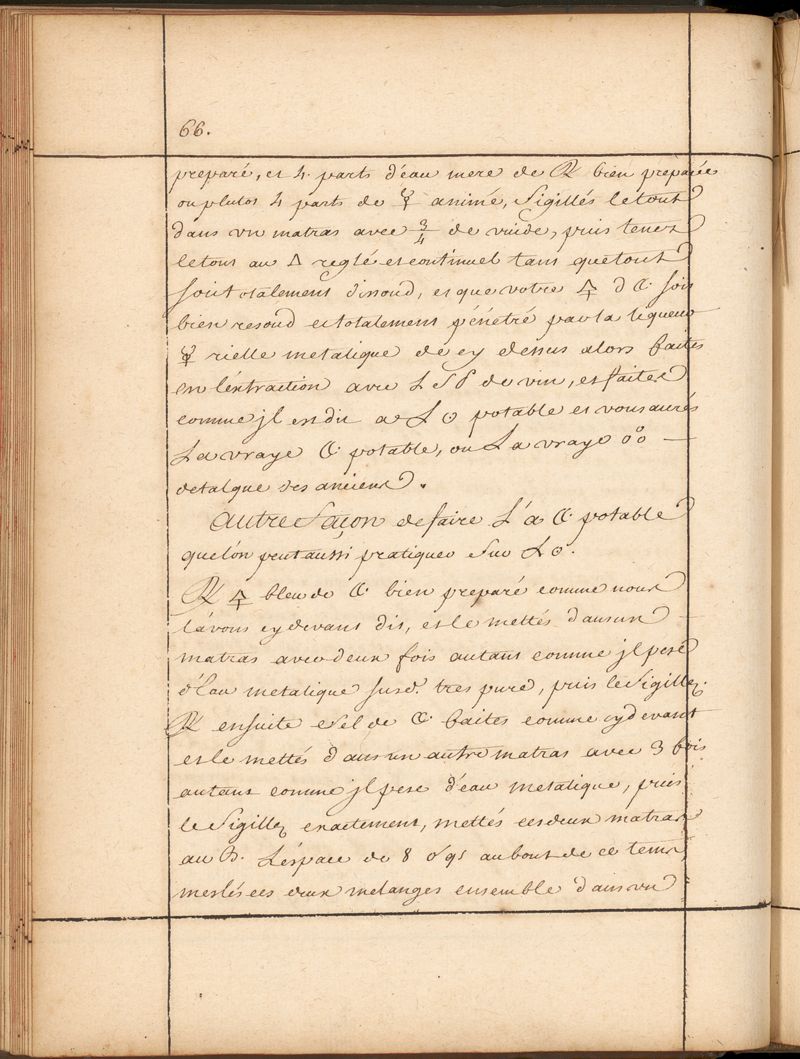 66.
preparé, et 4. parts d'éau mere de ℞ bien preparée
ou plutos 4 parts de ☿ animé, Sigillés le tout
dans vn matras avec 3/4 de vuide, puis tenez
le tous au △ reglé et continuel tans que tout
soit totalement dissoud, et que votre 🜃 d ☾. soit
bien resoud et totalement pénétré par la liqueur
☿ rielle metalique de cy dessus alors faites
en l'éxtraction avec L de vin, et faites
comme jl en dit a L ☉ potable et vous aurés
La vraye ☾. potable, ou La vraye
de talque des anciens.
Autre façon de faire L'a ☾. potable
que lón peut aussi pratiquer sur L ☉.
℞ 🜃 bleu de ☾. bien preparé comme nous
lávons cy devant dit, et le mettés dans un
matras avec deux fois autant comme jl pese
d'éau metalique susd. tres pure, puis le Sigillez.
℞ ensuite Sel de ☾. faites comme cy devant
et le mettés dans un autre matras avec 3 fois
autant comme jl pese d'éau metalique, puis
le Sigillez exactement, mettés ces deux matras
au B. L'éspace de 8 au bout de ce tems
meslés ces deux melanges ensemble dans vn